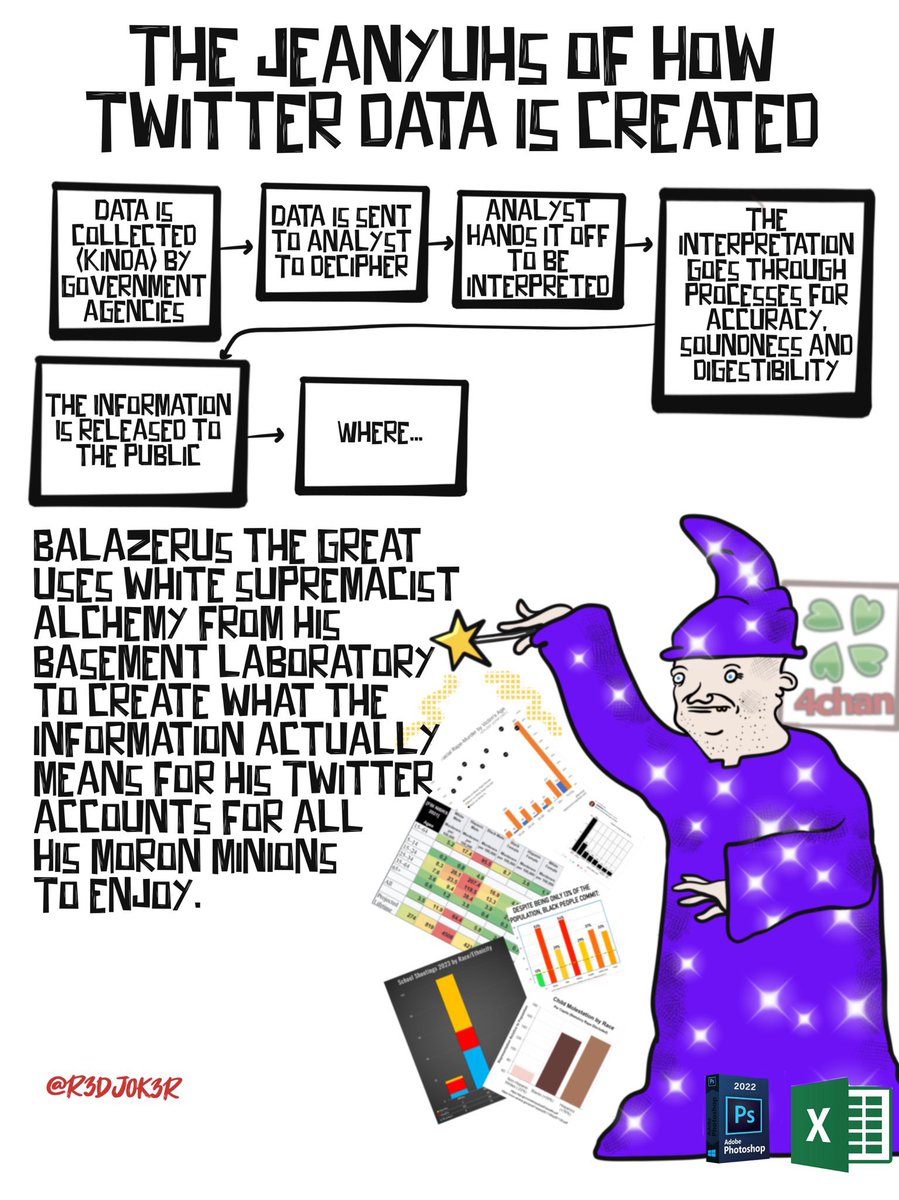 THE JEANYUHS OF HOW
TWITTER DATA IS CREATED
DATA IS
COLLECTED
(KINDA) BY
GOVERNMENT
AGENCIES
DATA IS SENT
TO ANALYST
TO DECIPHER
ANALYST
HANDS IT OFF
TO BE
INTERPRETED
THE
INTERPRETATION
GOES THROUGH
PROCESSES FOR
ACCURACY,
SOUNDNESS AND
DIGESTIBILITY
THE INFORMATION
IS RELEASED TO
THE PUBLIC
WHERE...
BALAZERUS THE GREAT
USES WHITE SUPREMACIST
ALCHEMY FROM HIS
BASEMENT LABORATORY
TO CREATE WHAT THE
INFORMATION ACTUALLY
MEANS FOR HIS TWITTER
ACCOUNTS FOR ALL
HIS MORON MINIONS
TO ENJOY.
4chan
DESPITE BEING ONLY 13% OF THE
POPULATION, BLACK PEOPLE COMMIT:
School Shootings 2023 by Race/Ethnicity
Child Molestation by Race
@R3DJOK3R
2022
Ps
Adobe
Photoshop
Adobe Photoshop
X